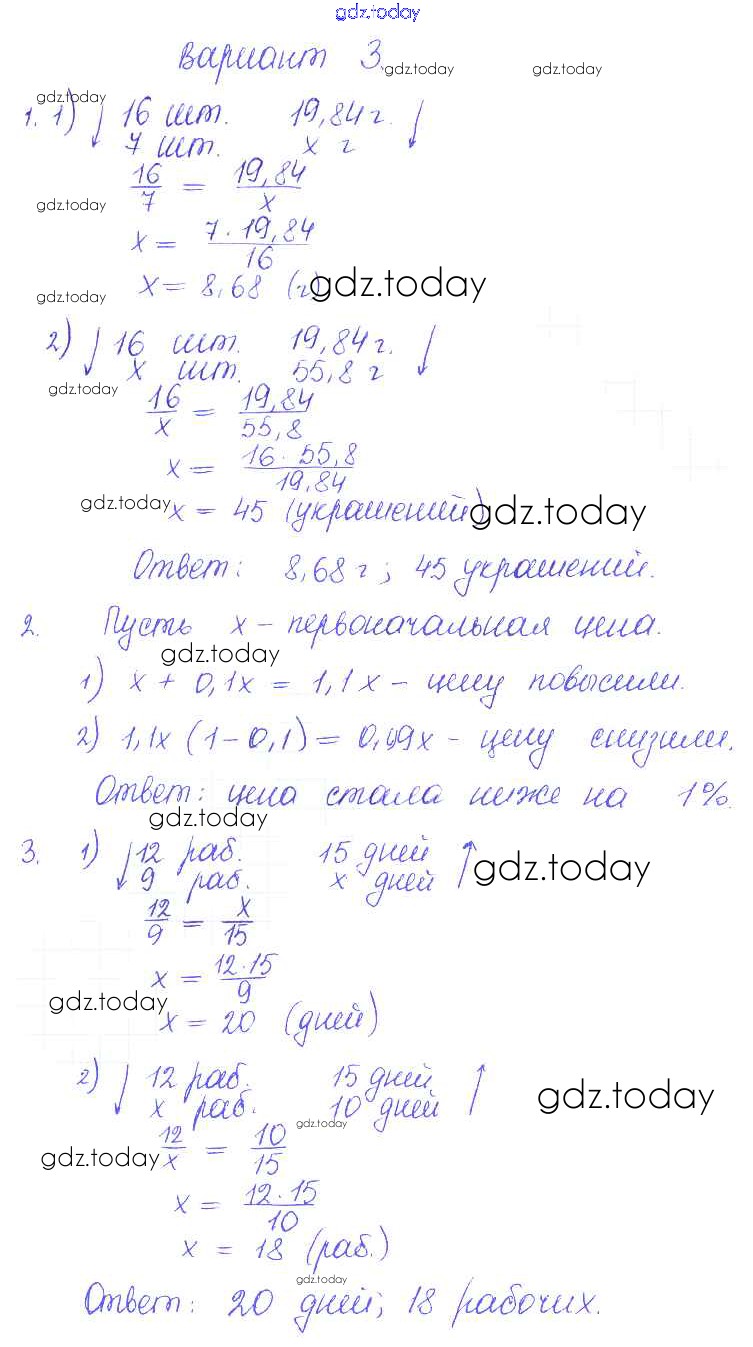 gdz.today
Вариант 3. gdz.today gdz.today
gdz.today
1. 1) ↓ 16 шт. 19,84 г. ↓
7 шт. x г
16/7 = 19,84/x
gdz.today
x = 7·19,84/16
x = 8,68 (г) gdz.today
gdz.today
2) ↓ 16 шт. 19,84 г. ↓
x шт. 55,8 г
gdz.today
16/x = 19,84/55,8
x = 16·55,8/19,84
gdz.today x = 45 (украшений) gdz.today
Ответ: 8,68 г; 45 украшений.
2. Пусть x – первоначальная цена.
gdz.today
1) x + 0,1x = 1,1x – цену повысили.
2) 1,1x (1 – 0,1) = 0,99x – цену снизили.
Ответ: цена стала ниже на 1%.
gdz.today
3. 1) ↓ 12 раб. 15 дней ↑ gdz.today
9 раб. x дней
12/9 = x/15
x = 12·15/9
gdz.today
x = 20 (дней)
2) ↓ 12 раб. 15 дней ↑ gdz.today
x раб. 10 дней
gdz.today
12/x = 10/15
gdz.today
x = 12·15/10
x = 18 (раб.)
gdz.today
Ответ: 20 дней; 18 рабочих.